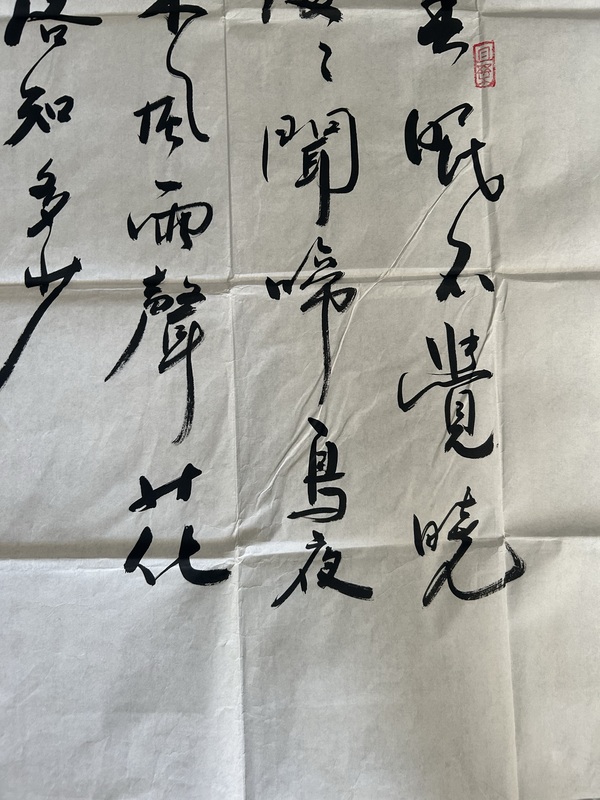 春眠不覺曉
處〻聞啼鳥夜
來風雨聲花
落知多少